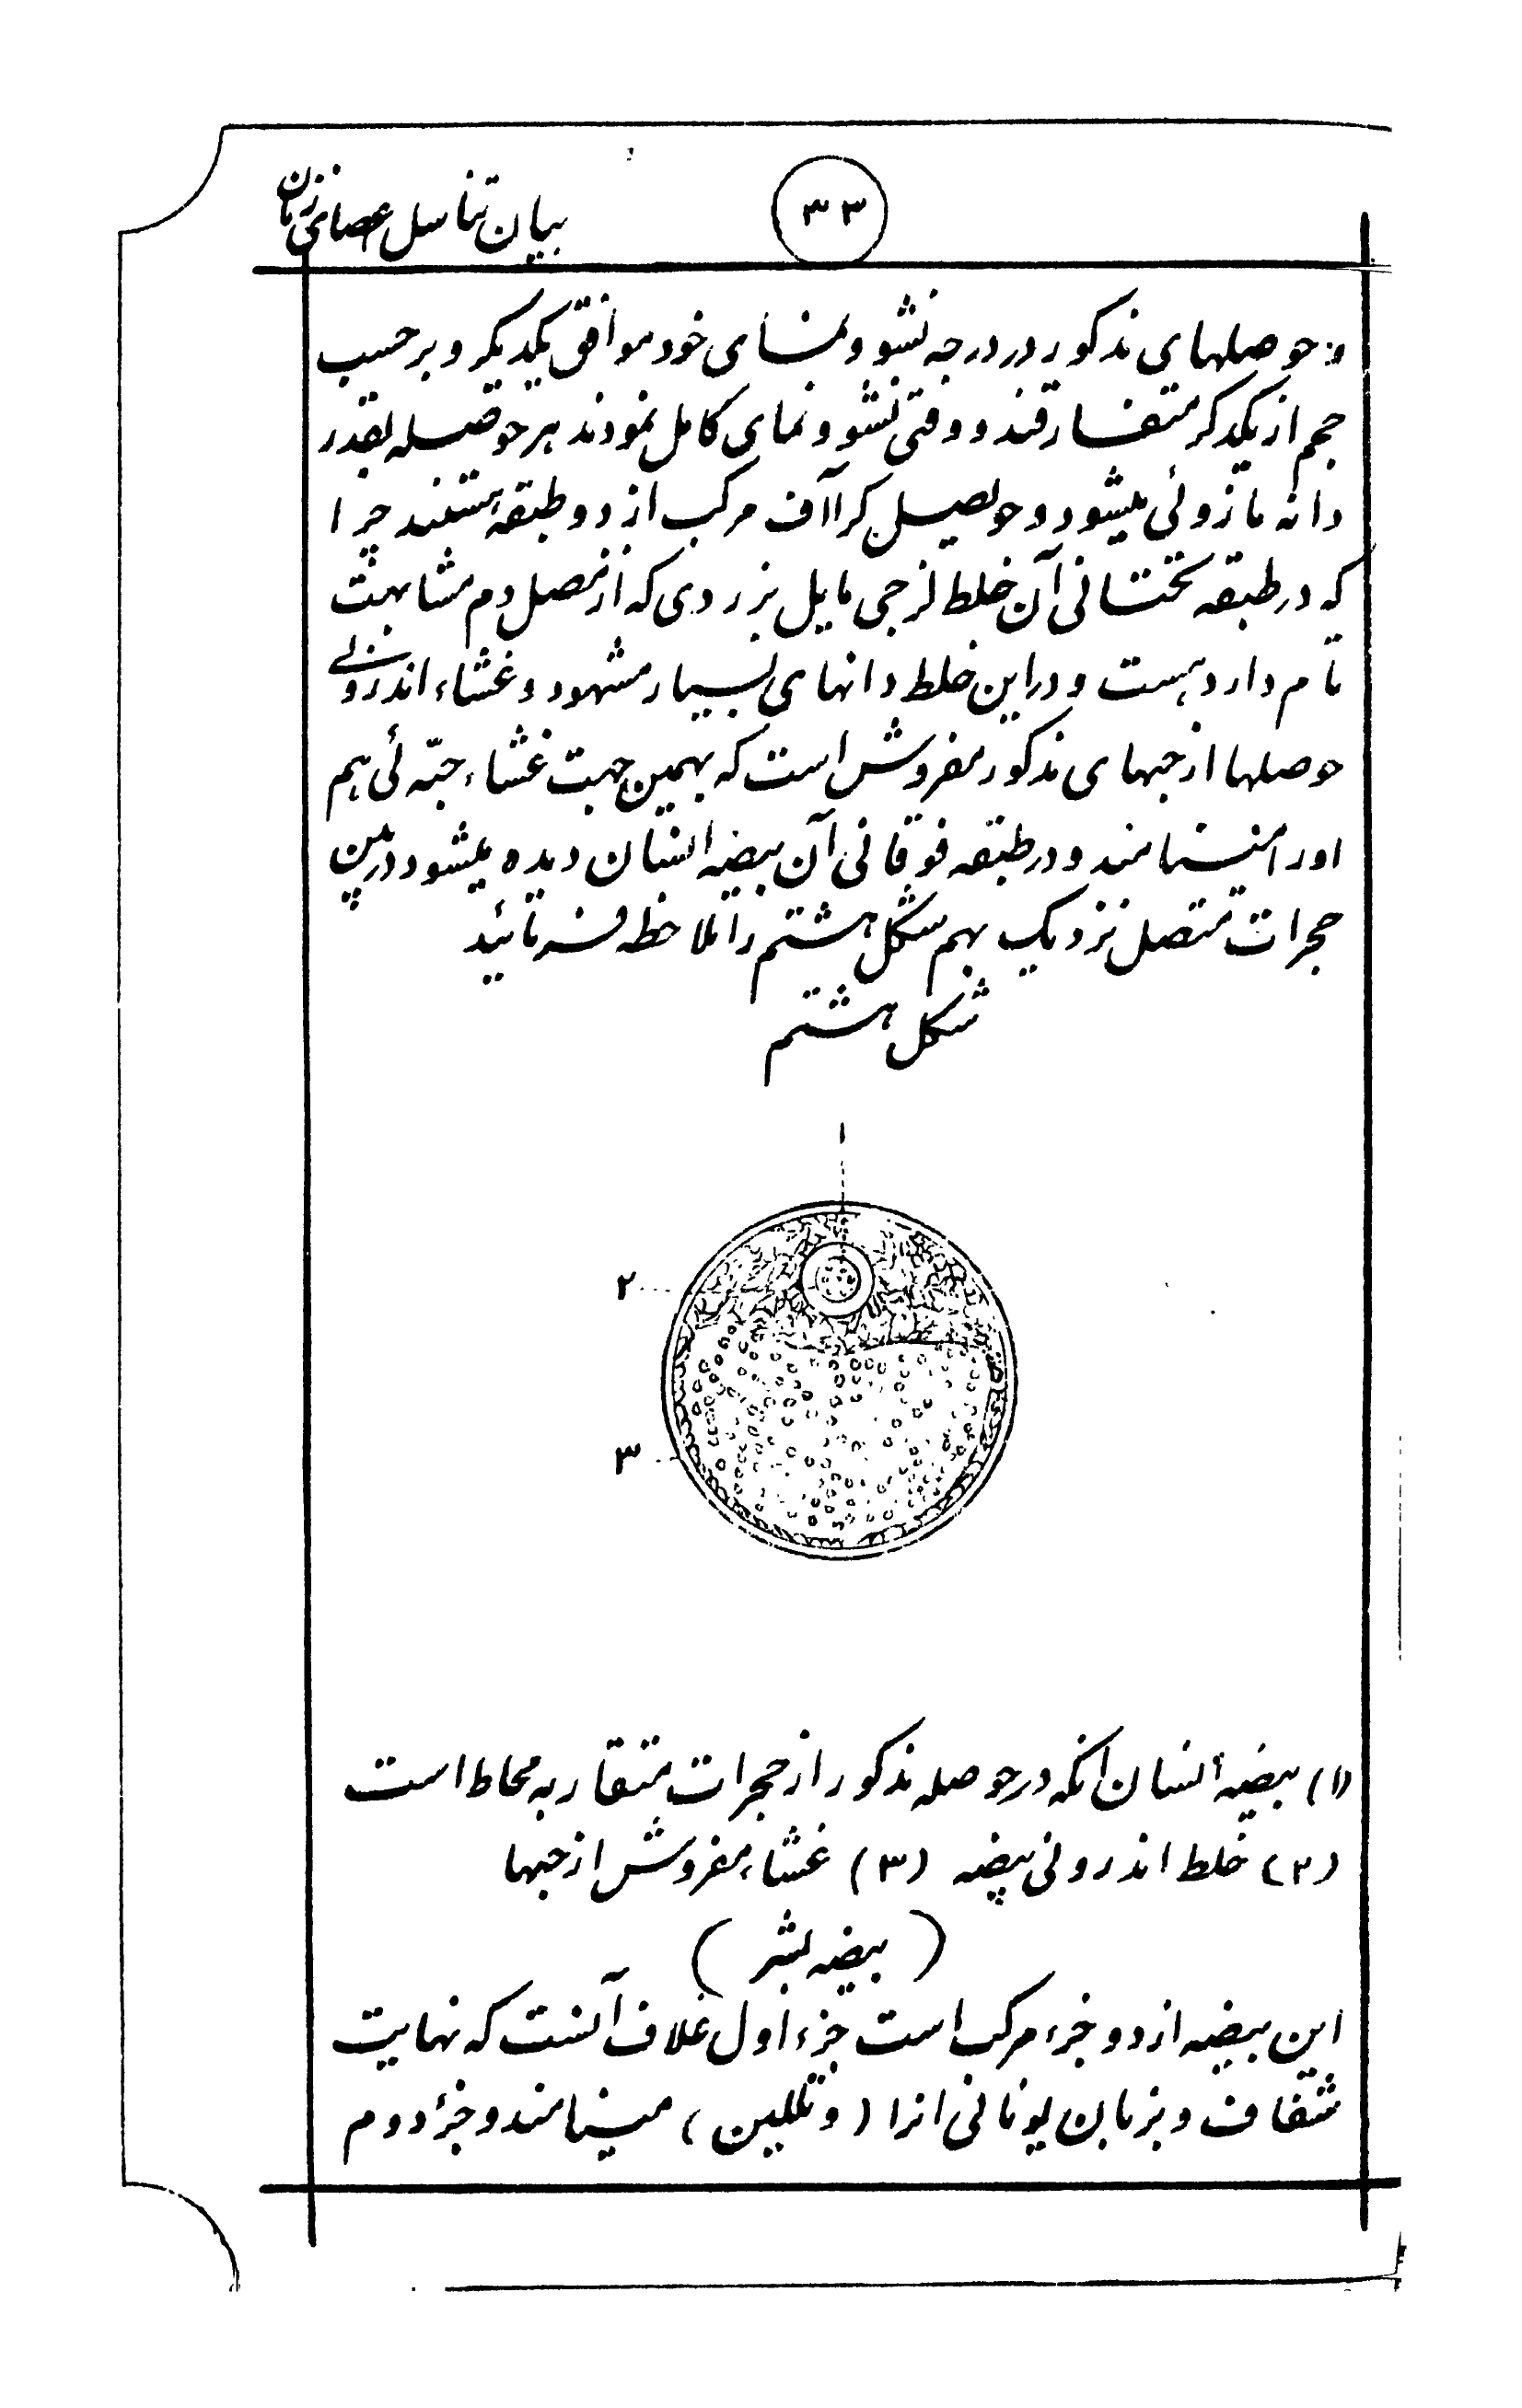 ۳۳
بیان تناسل اعضای زنان
و حوصلهای مذکور در درجه نشو و نمای خود موافق یکدیگر و بر حسب
حجم از یکدیگر متفارقند و وقتی نشو و نمای کامل نمودند هر حوصله بقدر
دانه مازوئی میشود و حوصل کراآف مرکب از دو طبقه هستند چرا
که در طبقه تحتانی آن خلط لزجی مایل بزردی که از مصل دم مشابهت
تام دارد هست و در این خلط دانهای بسیار مشهود و غشاء اندرونی
حوصلها از حبهای مذکور مفروش است که بهمین جهت غشاء حبّه ئی هم
اورا مینامند و در طبقه فوقانی آن بیضه انسان دیده میشود در بین
حجرات متصل نزدیک بهم شکل هشتم را ملاحظه فرمائید
شکل هشتم
۱
۲
۳
(۱) بیضه انسان انکه در حوصله مذکور از حجرات متقاربه محاط است
(۲) خلط اندرونی بیضه (۳) غشاء مفروش از حبها
( بیضه بشر )
این بیضه از دو جزء مرکب است جزء اول غلاف آنست که نهایت
شفاف و بزبان یونانی انرا (وتللین) مینامند و جزء دوم